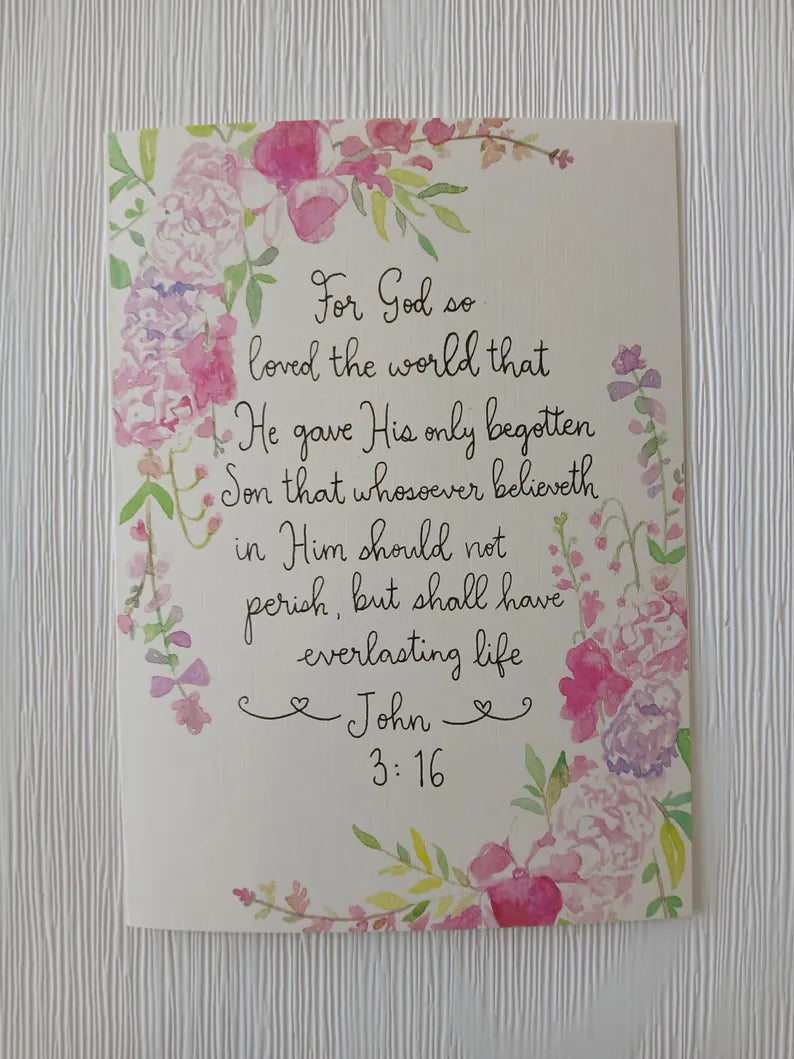 For God so
loved the world that
He gave His only begotten
Son that whosoever believeth
in Him should not
perish, but shall have
everlasting life
John
3:16